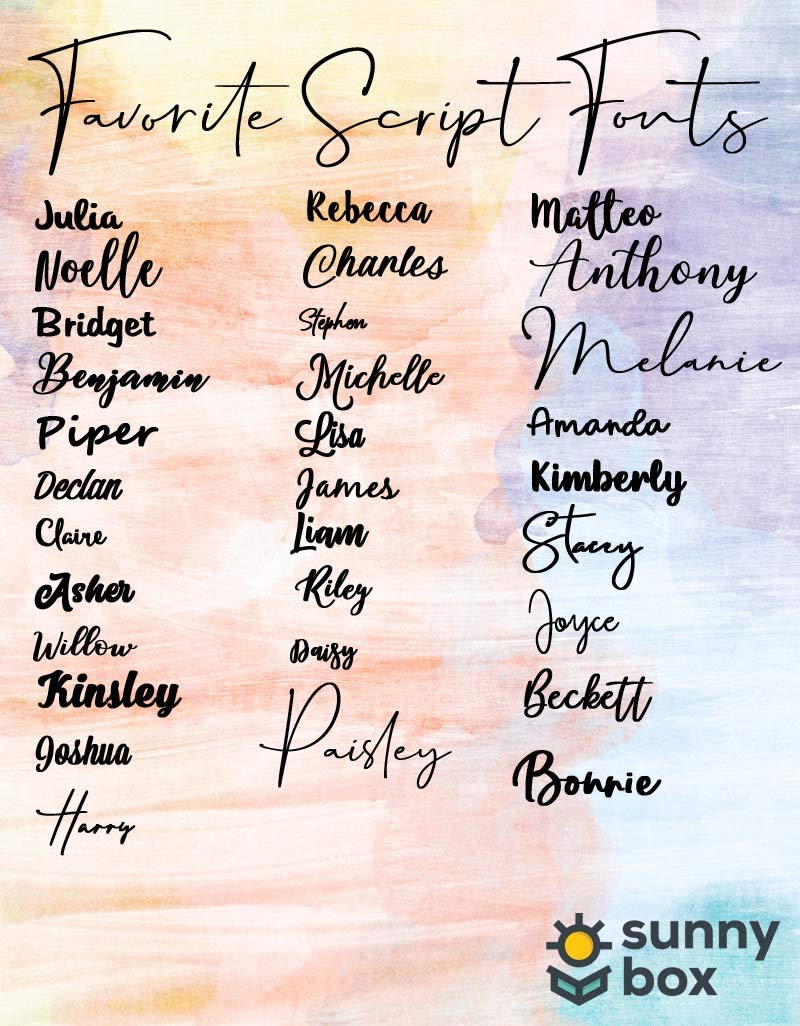 Favorite Script Fonts
Julia
Noelle
Bridget
Benjamin
Piper
Declan
Claire
Asher
Willow
Kinsley
Joshua
Harry
Rebecca
Charles
Stephen
Michelle
Lisa
James
Liam
Riley
Daisy
Paisley
Matteo
Anthony
Melanie
Amanda
Kimberly
Stacey
Joyce
Beckett
Bonnie
sunny
box